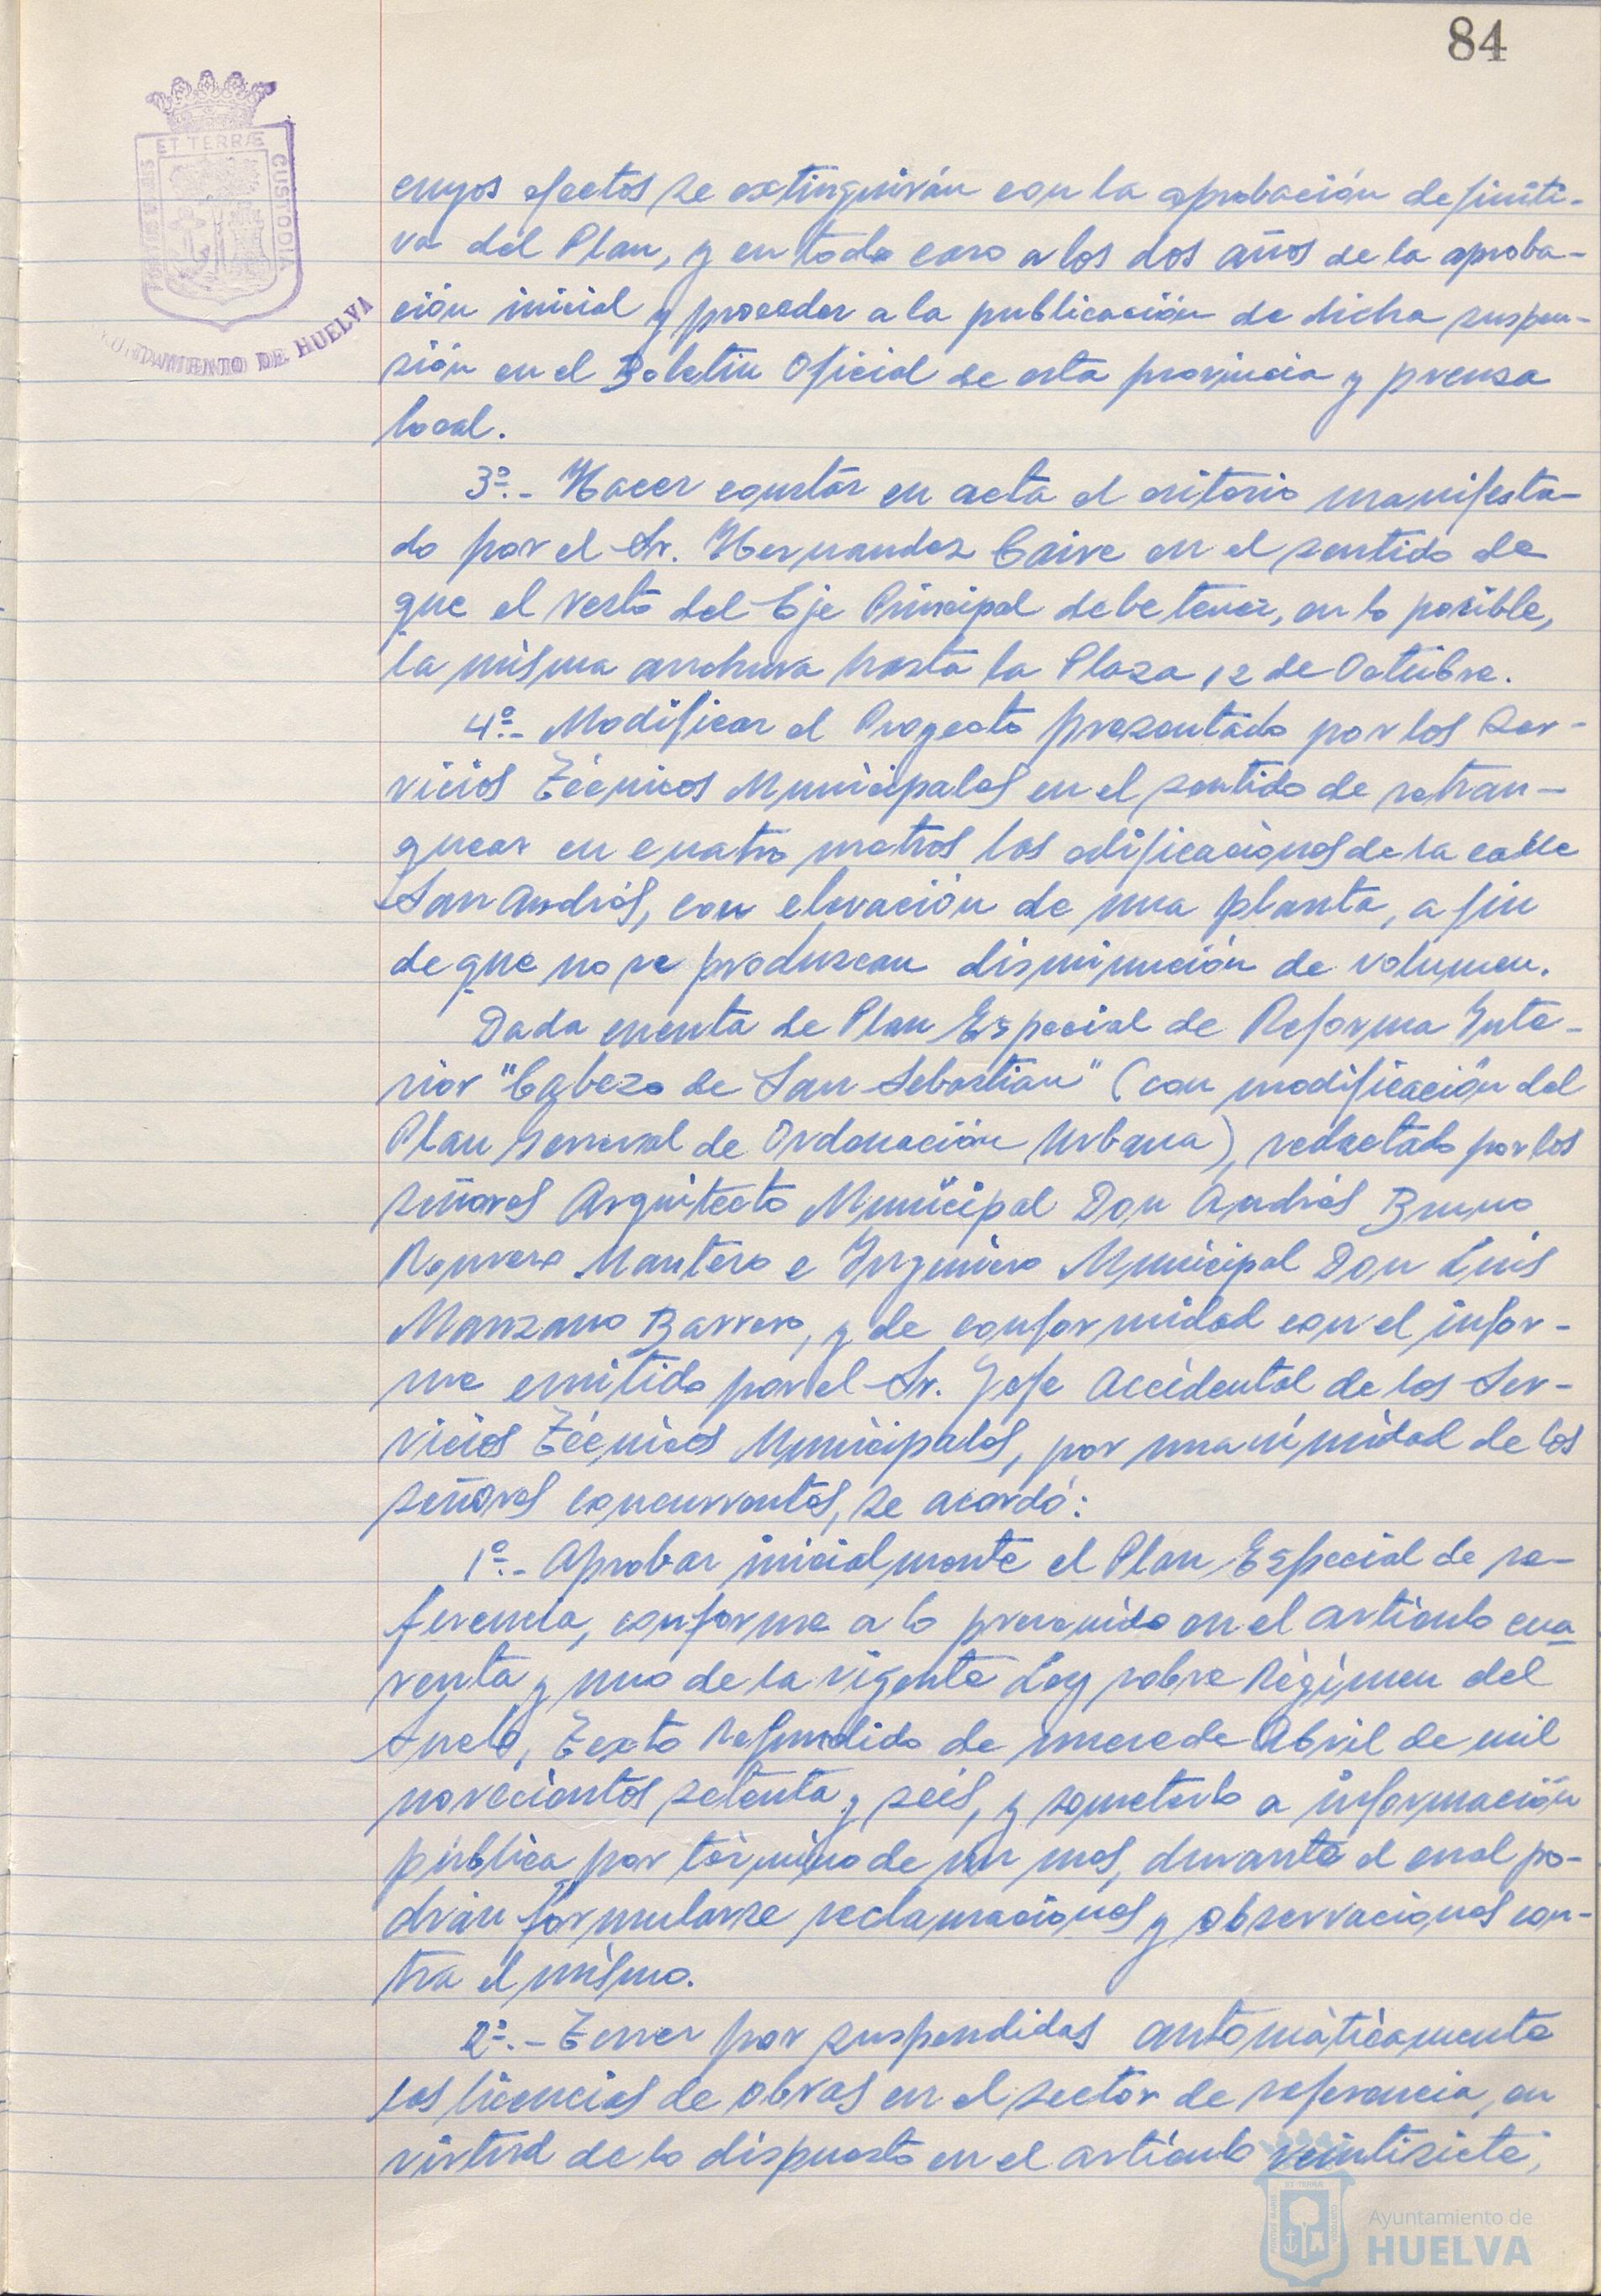 84
ET TERRÆ
CUSTODIA
AYUNTAMIENTO DE HUELVA
cuyos efectos se extinguirán con la aprobación definiti-
va del Plan, y en todo caso a los dos años de la aproba-
ción inicial y proceder a la publicación de dicha suspen-
sión en el Boletin Oficial de esta provincia y prensa
local.
3º.- Hacer constar en acta el criterio manifesta-
do por el Sr. Hernandez Caire en el sentido de
que el resto del Eje Principal debe tener, en lo posible,
la misma anchura hasta la Plaza 12 de Octubre.
4º.- Modificar el Proyecto presentado por los Ser-
vicios Técnicos Municipales en el sentido de retran-
quear en cuatro metros las edificaciones de la calle
San Andrés, con elevación de una planta, a fin
de que no se produzcan disminución de volumen.
Dada cuenta de Plan Especial de Reforma Inte-
rior "Cabezo de San Sebastian" (con modificación del
Plan General de Ordenación Urbana), redactado por los
señores Arquitecto Municipal Don Andrés Bruno
Romero Mantero e Ingeniero Municipal Don Luis
Manzano Barrero, y de conformidad con el infor-
me emitido por el Sr. Jefe Accidental de los Ser-
vicios Técnicos Municipales, por unanimidad de los
señores concurrentes, se acordó:
1º.- Aprobar inicialmente el Plan Especial de re-
ferencia, conforme a lo prevenido en el artículo cua
renta y uno de la vigente Ley sobre Régimen del
Suelo, Texto Refundido de nueve de Abril de mil
novecientos setenta y seis, y someterlo a información
pública por término de un mes, durante el cual po-
drán formularse reclamaciones y observaciones con-
tra el mismo.
2º.- Tener por suspendidas automáticamente
las licencias de obras en el sector de referencia, en
virtud de lo dispuesto en el artículo veintisiete,
Ayuntamiento de
HUELVA